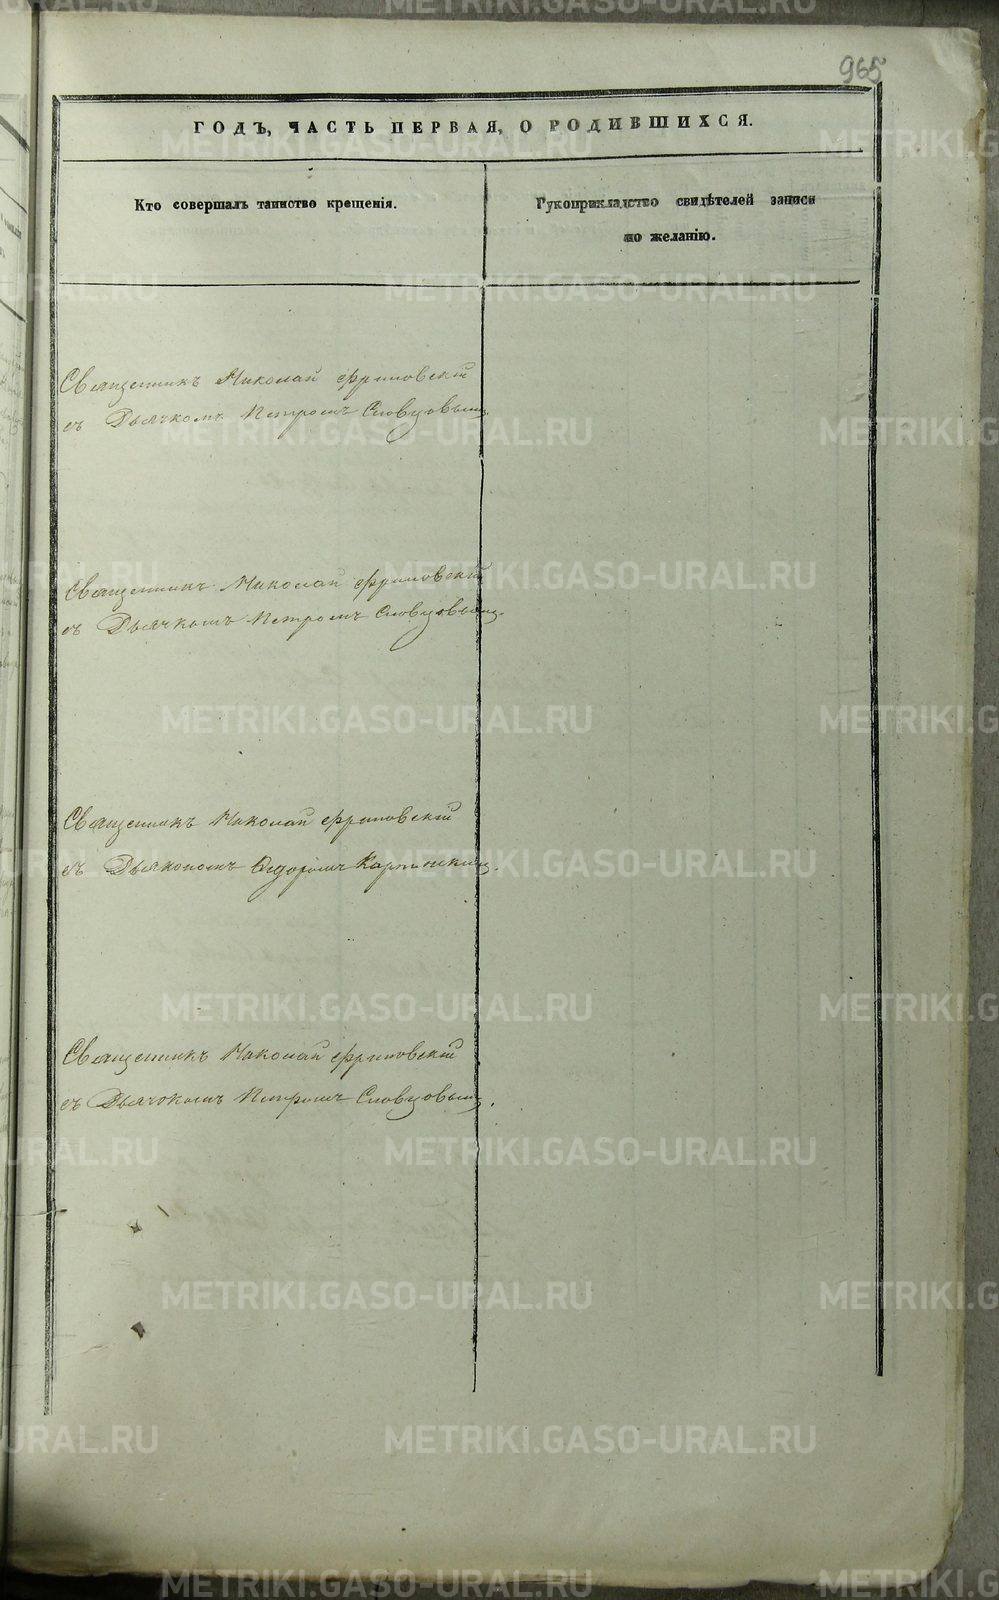 965
ГОДЪ, ЧАСТЬ ПЕРВАЯ, О РОДИВШИХСЯ.
Кто совершалъ таинство крещенія.
Рукоприкладство свидѣтелей записи
по желанію.
Священникъ Николай Фриновскій
съ Дьячкомъ Петромъ Словцовымъ.
Священникъ Николай Фриновскій
съ Дьячкомъ Петромъ Словцовымъ.
Священникъ Николай Фриновскій
съ Дьякономъ Ѳедоромъ Карпинскимъ.
Священникъ Николай Фриновскій
съ Дьячокомъ Петромъ Словцовымъ.
METRIKI.GASO-URAL.RU